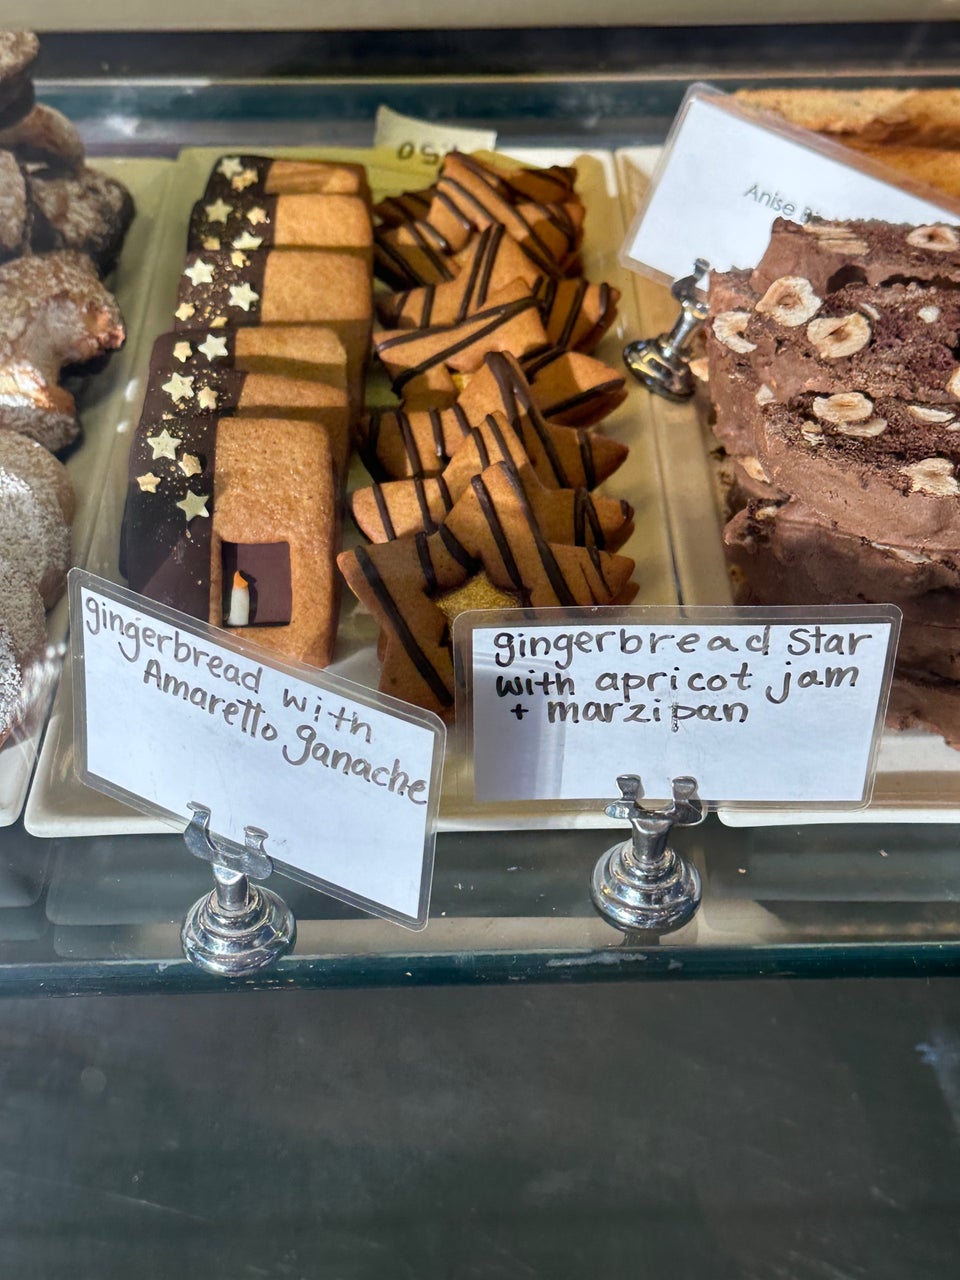 Anise
gingerbread with
Amaretto ganache
gingerbread star
with apricot jam
+ marzipan